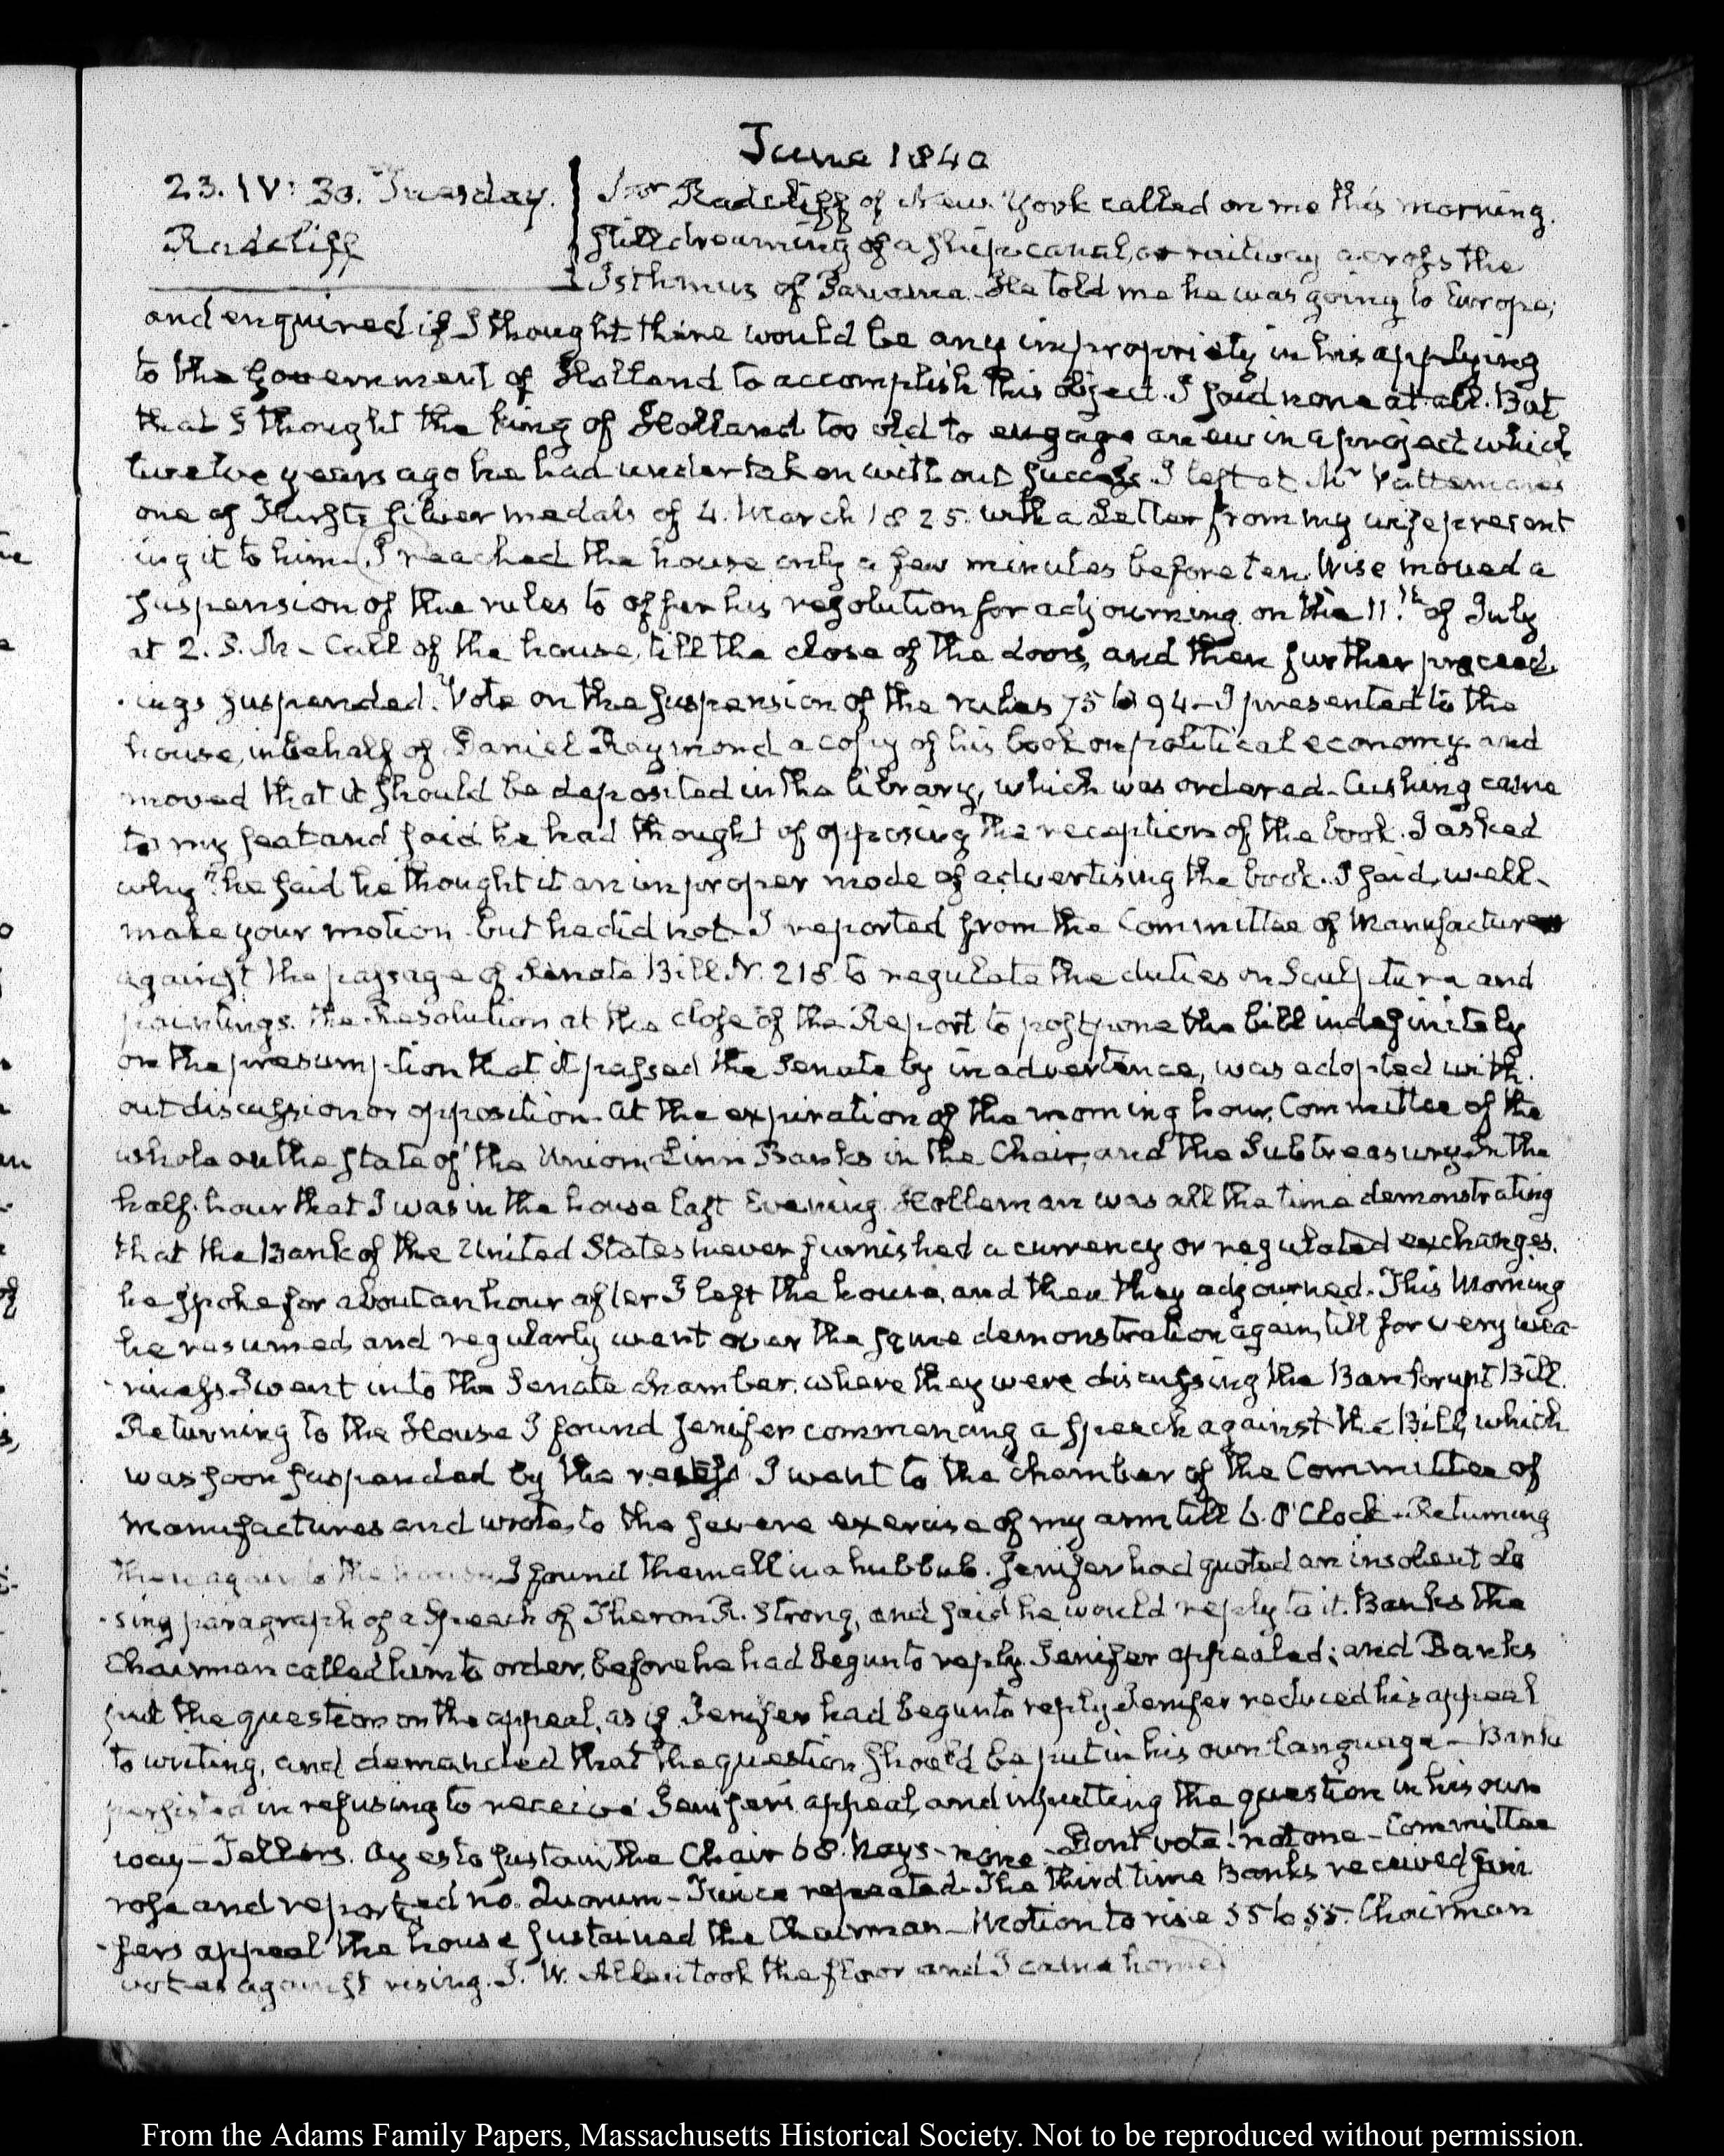 June 1840
23. IV: 30. Tuesday.
Radcliff
Mr Radcliff of New York called on me this morning.
Still dreaming of a ship canal, or railway across the
Isthmus of Panama. He told me he was going to Europe;
and enquired if I thought there would be any impropriety in his applying
to the Government of Holland to accomplish this object. I said none at all. But
that I thought the king of Holland too old to engage anew in a project which
twelve years ago he had undertaken without success. I left at Mr Vattemare's
one of Furst's silver medals of 4. March 1825. with a Letter from my wife present
ing it to him. I reached the house only a few minutes before ten. Wise moved a
suspension of the rules to offer his resolution for adjourning on the 11.th of July
at 2. P. M – Call of the house, till the close of the doors, and then further proceed-
ings suspended. Vote on the suspension of the rules 75 to 94 – I presented to the
house, in behalf of Daniel Raymond a copy of his book on political economy and
moved that it should be deposited in the library, which was ordered – Cushing came
to my seat and said he had thought of opposing the reception of the book. I asked
why? he said he thought it an improper mode of advertising the book. I said, well –
make your motion – but he did not – I reported from the Committee of Manufactures
against the passage of Senate Bill N. 218 to regulate the duties on Sculpture and
paintings. The Resolution at the close of the Report to postpone the bill indefinitely
on the presumption that it passed the Senate by inadvertence, was adopted with-
out discussion or opposition – At the expiration of the morning hour, Committee of the
whole on the state of the Union, Linn Banks in the Chair, and the Subtreasury – In the
half-hour that I was in the house last Evening Holleman was all the time demonstrating
that the Bank of the United States never furnished a currency or regulated exchanges.
he spoke for about an hour after I left the house, and then they adjourned – This Morning
he resumed and regularly went over the same demonstration again, till for very wea-
riness I went into the Senate chamber, where they were discussing the Bankrupt Bill.
Returning to the House I found Jenifer commencing a speech against the Bill, which
was soon suspended by the recess I went to the chamber of the Committee of
Manufactures and wrote, to the severe exercise of my arm till 6. O'Clock – Returning
then again to the house, I found them all in a hubbub. Jenifer had quoted an insolent clo
-sing paragraph of a Speech of Theron R. Strong, and said he would reply to it. Banks the
Chairman called him to order, before he had begun to reply. Jenifer appealed; and Banks
put the question on the appeal, as if Jenifer had begun to reply. Jenifer reduced his appeal
to writing, and demanded that the question should be put in his own language – Banks
persisted in refusing to receive Jenifer's appeal, and in putting the question in his own
way – Tellers. Ayes to sustain the Chair 68. Nays – none – Dont vote! not one – Committee
rose and reported no Quorum – Twice repeated – The third time Banks received Jeni
-fers appeal the house sustained the Chairman – Motion to rise 55 to 55. Chairman
votes against rising. J. W. Allen took the floor and I came home
From the Adams Family Papers, Massachusetts Historical Society. Not to be reproduced without permission.